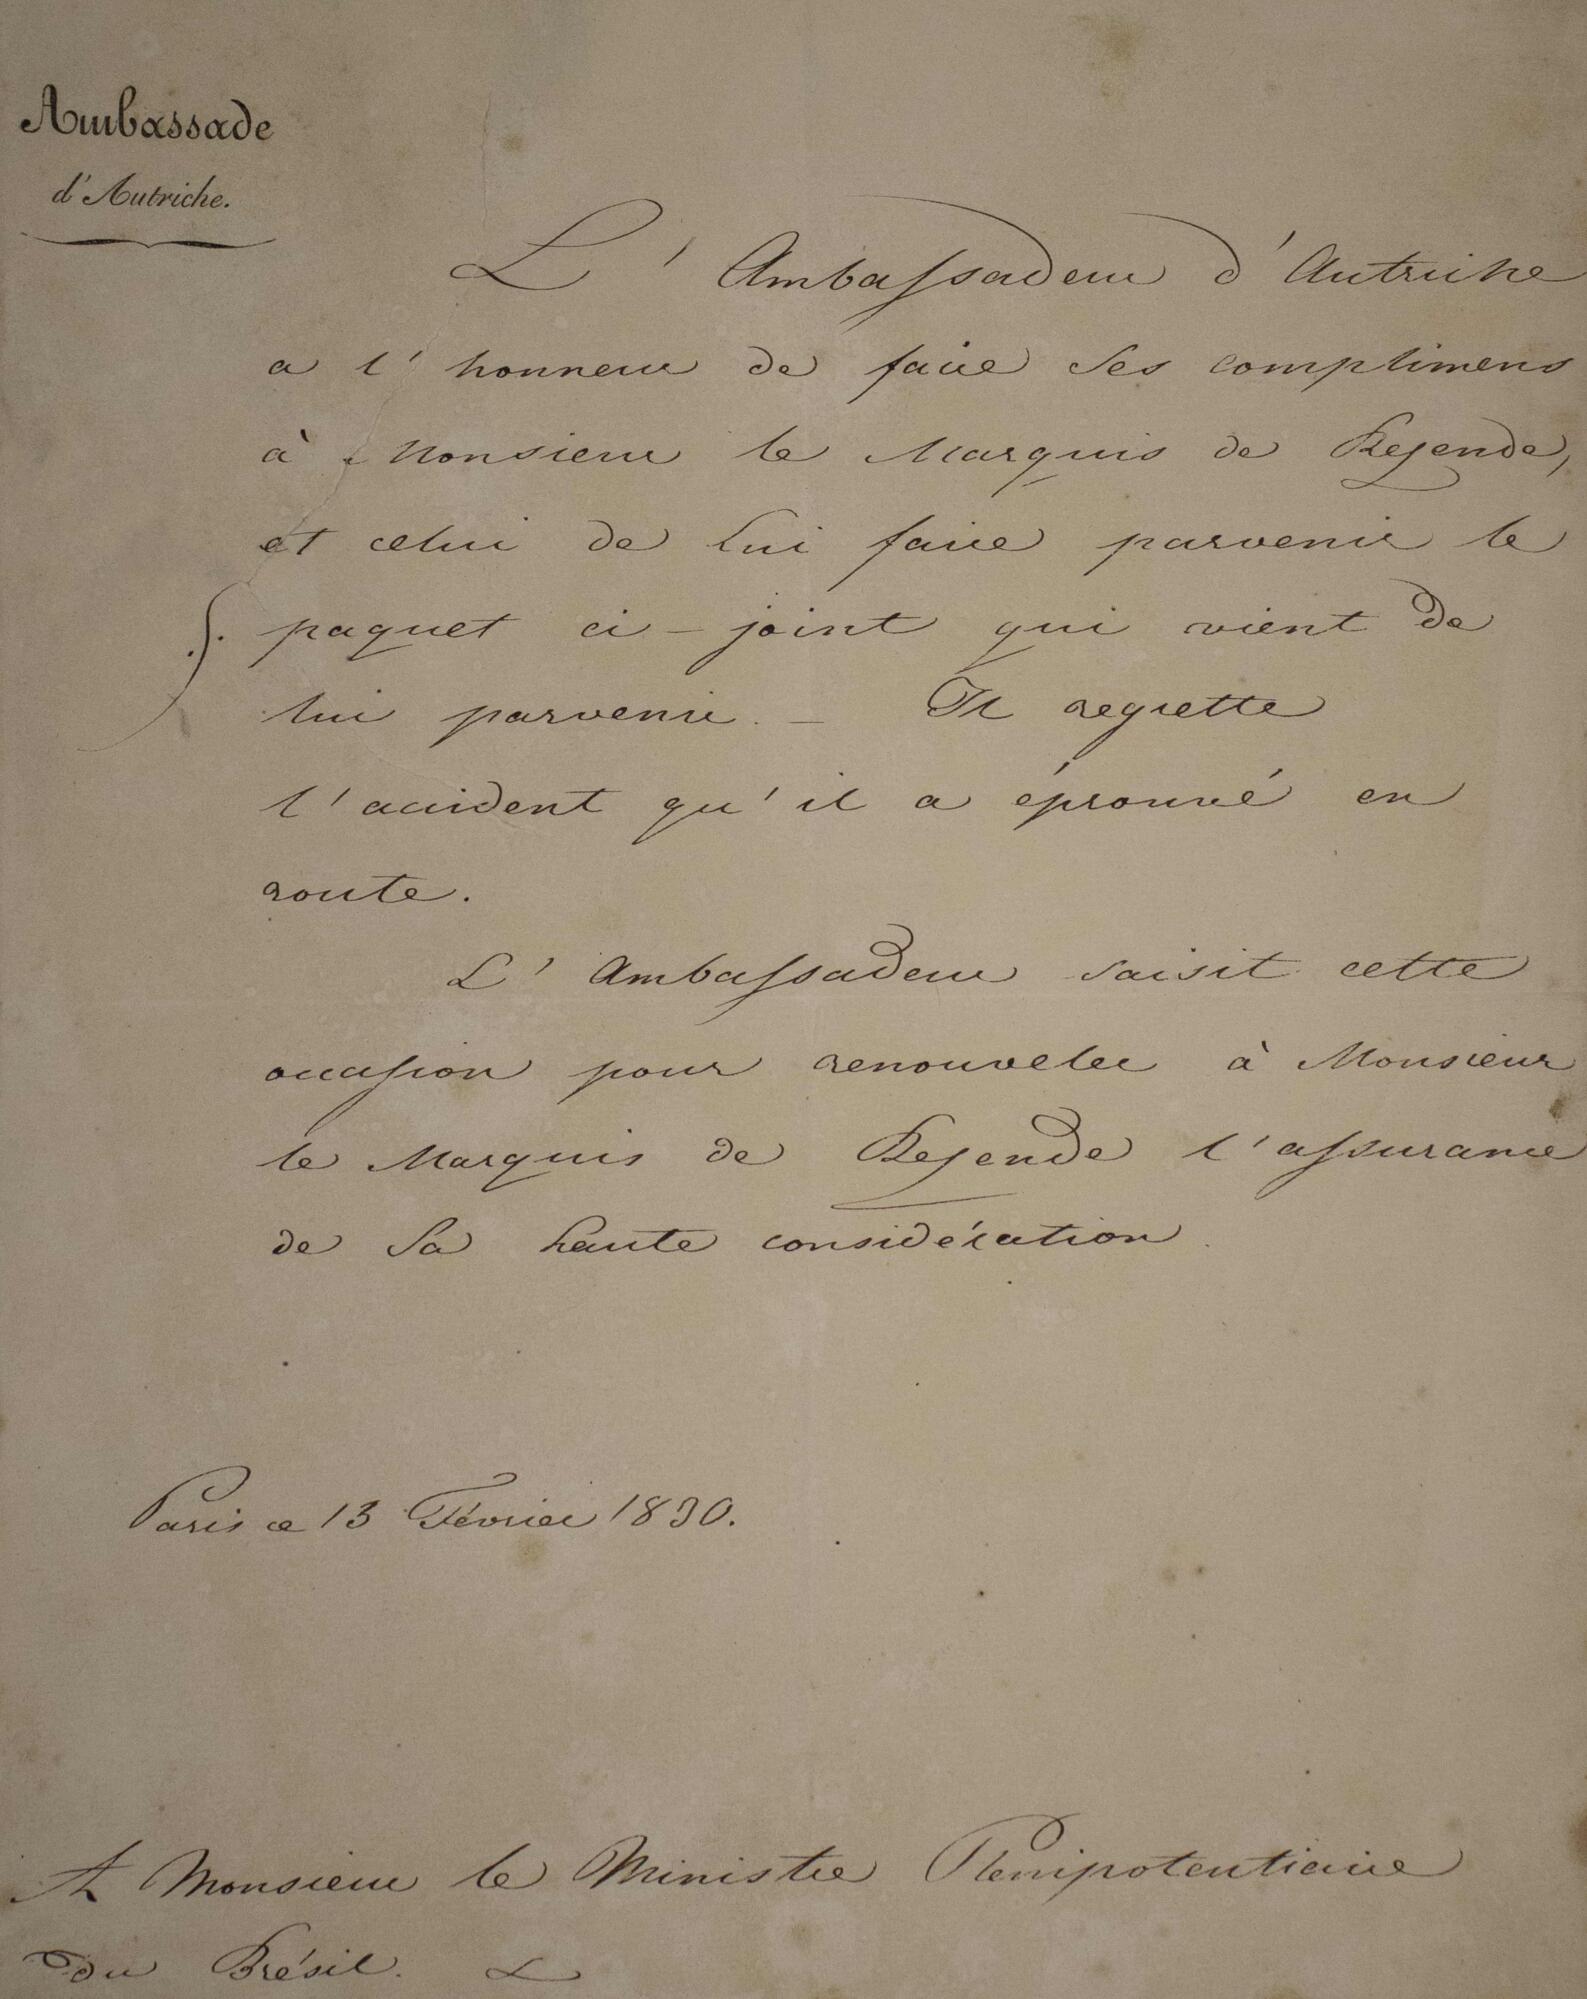 Ambassade
d'Autriche.
L'Ambassadeur d'Autriche
a l'honneur de faire Ses complimens
à Monsieur le Marquis de Resende,
et celui de Lui faire parvenir le
paquet ci-joint qui vient de
lui parvenir. — Il regrette
l'accident qu'il a éprouvé en
route.
L'Ambassadeur saisit cette
occasion pour renouveler à Monsieur
le Marquis de Resende l'assurance
de Sa haute considération.
Paris ce 13 Février 1830.
A Monsieur le Ministre Plenipotentiaire
du Brésil.